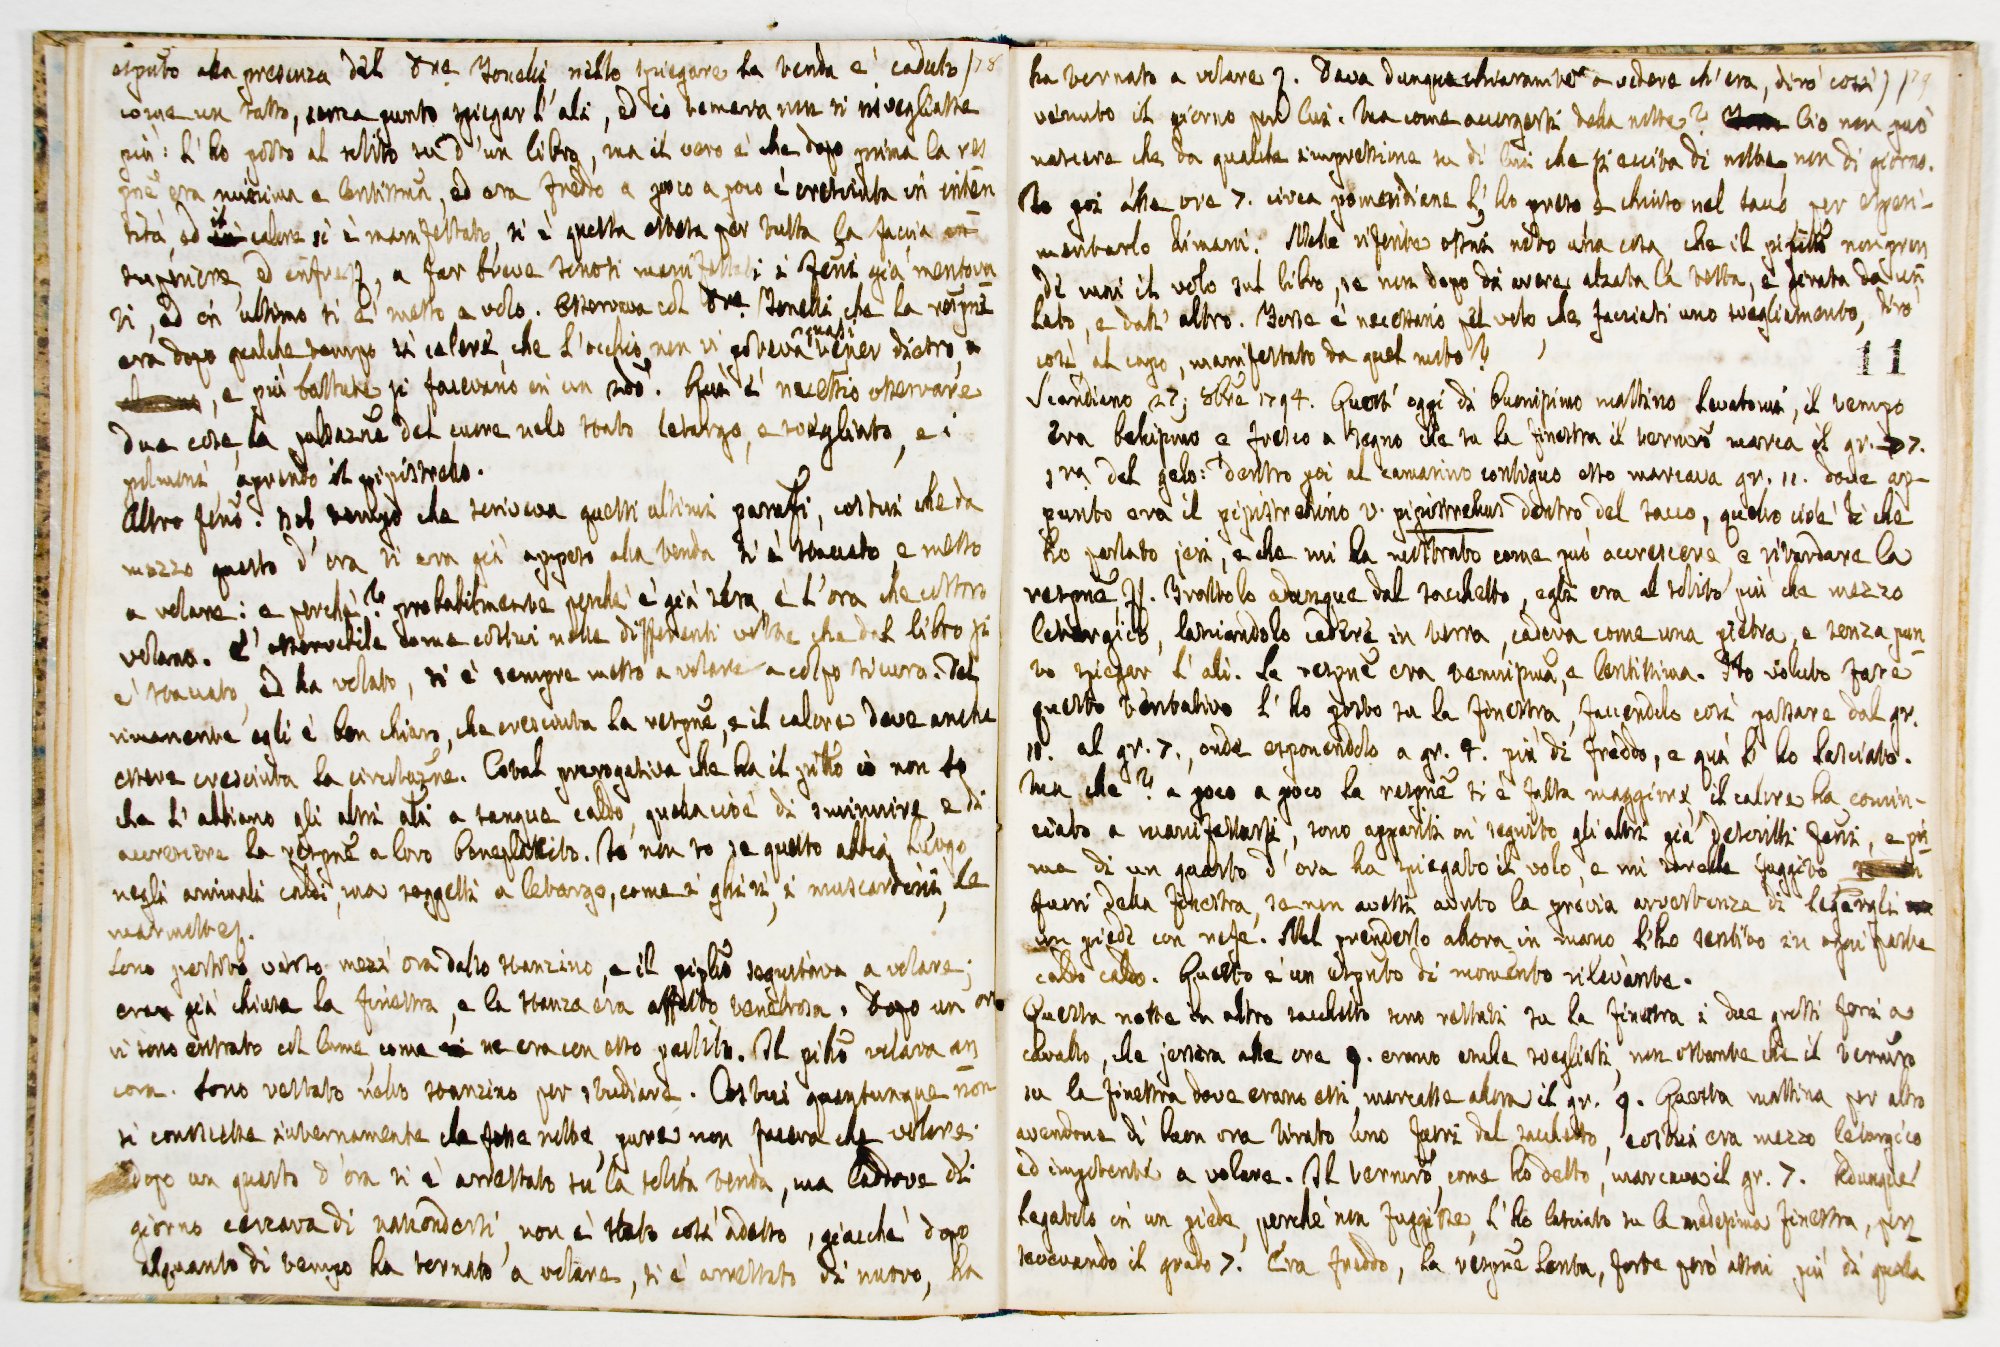 alla presenza del Dre Tonelli nello spiegare la benda e' caduto 178
come un sasso, senza punto spiegar l'ali, ed io temeva non si risvegliasse
più: l'ho posto al solito su d'un libro, ma il vero è che dopo prima la res
pne era minima e lentissima, ed era freddo a poco a poco è cresciuta in inten
sità, ed il calore si è manifestato, si è questa estesa per tutta la faccia
superiore, ed, a far breve sonosi manifestati i feni già mentova
ti, ed in ultimo si è messo a volo. Osservava col Dre. Tonelli, che la respne
era dopo qualche tempo sì celere, che l'occhio non vi poteva quasi tener dietro,
, e più battute si facevano in un 2do. Quà è necessrio osservare
due cose, la pulsazne del cuore nelo stato letargo, e svegliato, e i
pulmoni aprendo il pipistrelo.
Altro feno. Nel tempo che scriveva questi ultimi parafi, costui che da
mezzo quarto d'ora si era già appeso alla benda si è staccato, e messo
a volare: e perchè? probabilmente perchè è già sera, è l'ora che costoro
volano. E' osservabile come costui nelle differenti volte che dal libro si
e' staccato, ed ha volato, si è sempre messo a volare a colpo sicuro. Del
rimanente egli è ben chiaro, che cresciuta la respne, e il calore deve anche
essere cresciuta la circolazne. Cotal prerogativa che ha il pitto io non so
che l'abbiano gli altri ali a sangue caldo, quella cioè di sminuire e di
accrescere la respne a loro beneplacito. Io non so se questo abbia luogo
negli animali caldi, ma soggetti a letargo, come i ghiri, i muscardini, le
marmotte.
Sono partito verso mezz'ora dallo stanzino, e il piplo seguitava a volare;
era già chiusa la finestra, e la stanza era affatto tenebrosa. Dopo un ora
vi sono entrato col lume come ne era con esso partito. Il pitto volava an
cora. Sono restato nello stanzino per studiare. Costui quantunque non
si conoscesse internamente che fosse notte, pure non faceva che volare.
Dopo un quarto d'ora si è arrestato su la solita benda, ma laddove di
giorno cercava di nascondersi, non è stato così adesso, giacchè dopo
alquanto di tempo ha tornato a volare, si è arrestato di nuovo, ha
ha tornato a volare. Dava dunque chiaramte a vedere ch'era, dirò così, 179
venuto il giorno per lui. Ma come accorgersi della notte? Ciò non può
nascere che da qualche impressione su di lui che si ecciti di notte, non di giorno.
Io poi alle ore 7. circa pomeridiane l'ho preso e chiuso nel sacco, per speri-
mentarlo dimani. Merita riferirsi una cosa che il pipillo non pren
de mai il volo sul libro, se non dopo di avere alzata la testa, e girata da un
lato, e dall'altro. Forse è necessario pel volo, che facciasi uno svegliamento, dirò
così, al capo, manifestato da quel moto?
11
Scandiano 27; 8bre 1794. Quest'oggi di buonissimo mattino levatomi, il tempo
era belissimo e fresco a segno che su la finestra il termro marca il gr. 7.
sra. del gelo: dentro poi al camarino contiguo esso marcava gr. 11. dove ap-
punto era il pipistrelino v. pipistrellus dentro del sacco, quello cioè di che
ho parlato jeri, e che mi ha mostrato come può accrescere, e ritardare la
respne. Trattolo adunque dal sacchetto, egli era al solito più che mezzo
letargico, lasciandolo cadere in terra, cadeva come una pietra, e senza pun
to spiegar l'ali. La respne era tenuissima, e lentissima. Ho voluto fare
questo tentativo l'ho posto su la finestra, facendolo così passare dal gr.
11. al gr. 7., onde esponendolo a gr. 4. più di freddo, e quà l'ho lasciato.
Ma che? a poco a poco la respne si è fatta maggiore il calore ha comin-
ciato a manifestarsi, sono appariti in seguito gli altri già descritti feni, e pri
ma di un quarto d'ora ha spiegato il volo, e mi sarebbe fuggito
fuori della finestra, se non avessi avuto la previa avvertenza di legargli
un piede con refe. Nel prenderlo allora in mano l'ho sentito in ogni parte
caldo caldo. Questo è un risultato di momento rilevante.
Questa notte in altro sacchetto sono restati su la finestra i due grossi ferri a
cavallo, che jersera alle ore 9. erano anche svegliati, non ostante che il termro
su la finestra dove erano essi, marcasse allora il gr. 9. Questa mattina per altro
avendone di buon ora tirato uno fuori dal sacchetto, costui era mezzo letargico
ed impotente a volare. Il termro, come ho detto, marcava il gr. 7. Adunque
legatolo in un piede, perchè non fuggisse, l'ho lasciato su la medesima finestra, per
severando il grado 7. Era freddo, la respne lenta, forte però assai più di quella